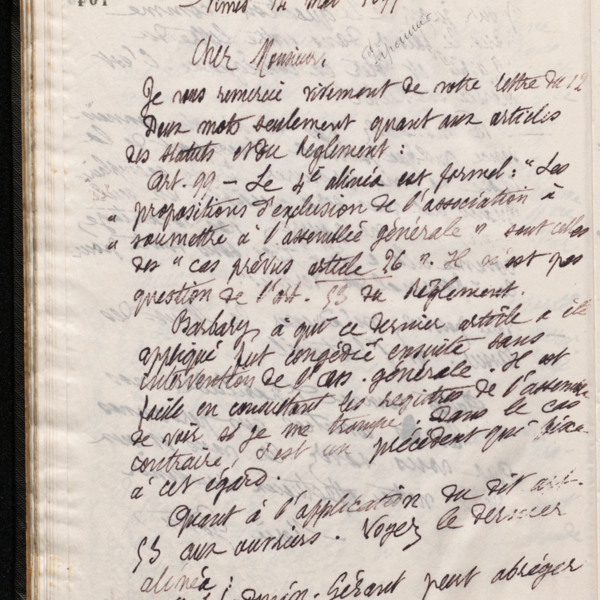 401
Nîmes 14 Mai 18
Cher Monsieur,
Je vous remercie vivement de votre lettre du 12
Deux mots seulement quant aux articles
des statuts et du Règlement :
Art. 99 – Le 4e alinéa est formel : " Les
" propositions d'exclusion de l'association à
" soumettre à l'assemblée générale " sont celles
des " cas prévus article 26 ". Il n'est pas
question de l'art. 53 du Règlement.
Barbary à qui ce dernier article a été
appliqué fut congédié ensuite sans
intervention de l'ass. générale. Il est
facile en consultant les registres de l'assemblée
de voir si je me trompe. Dans le cas
contraire, c'est un précédent qui
à cet égard.
Quant à l'application du dit art.
53 aux ouvriers. Voyez le dernier
alinéa :
Gérant peut abréger